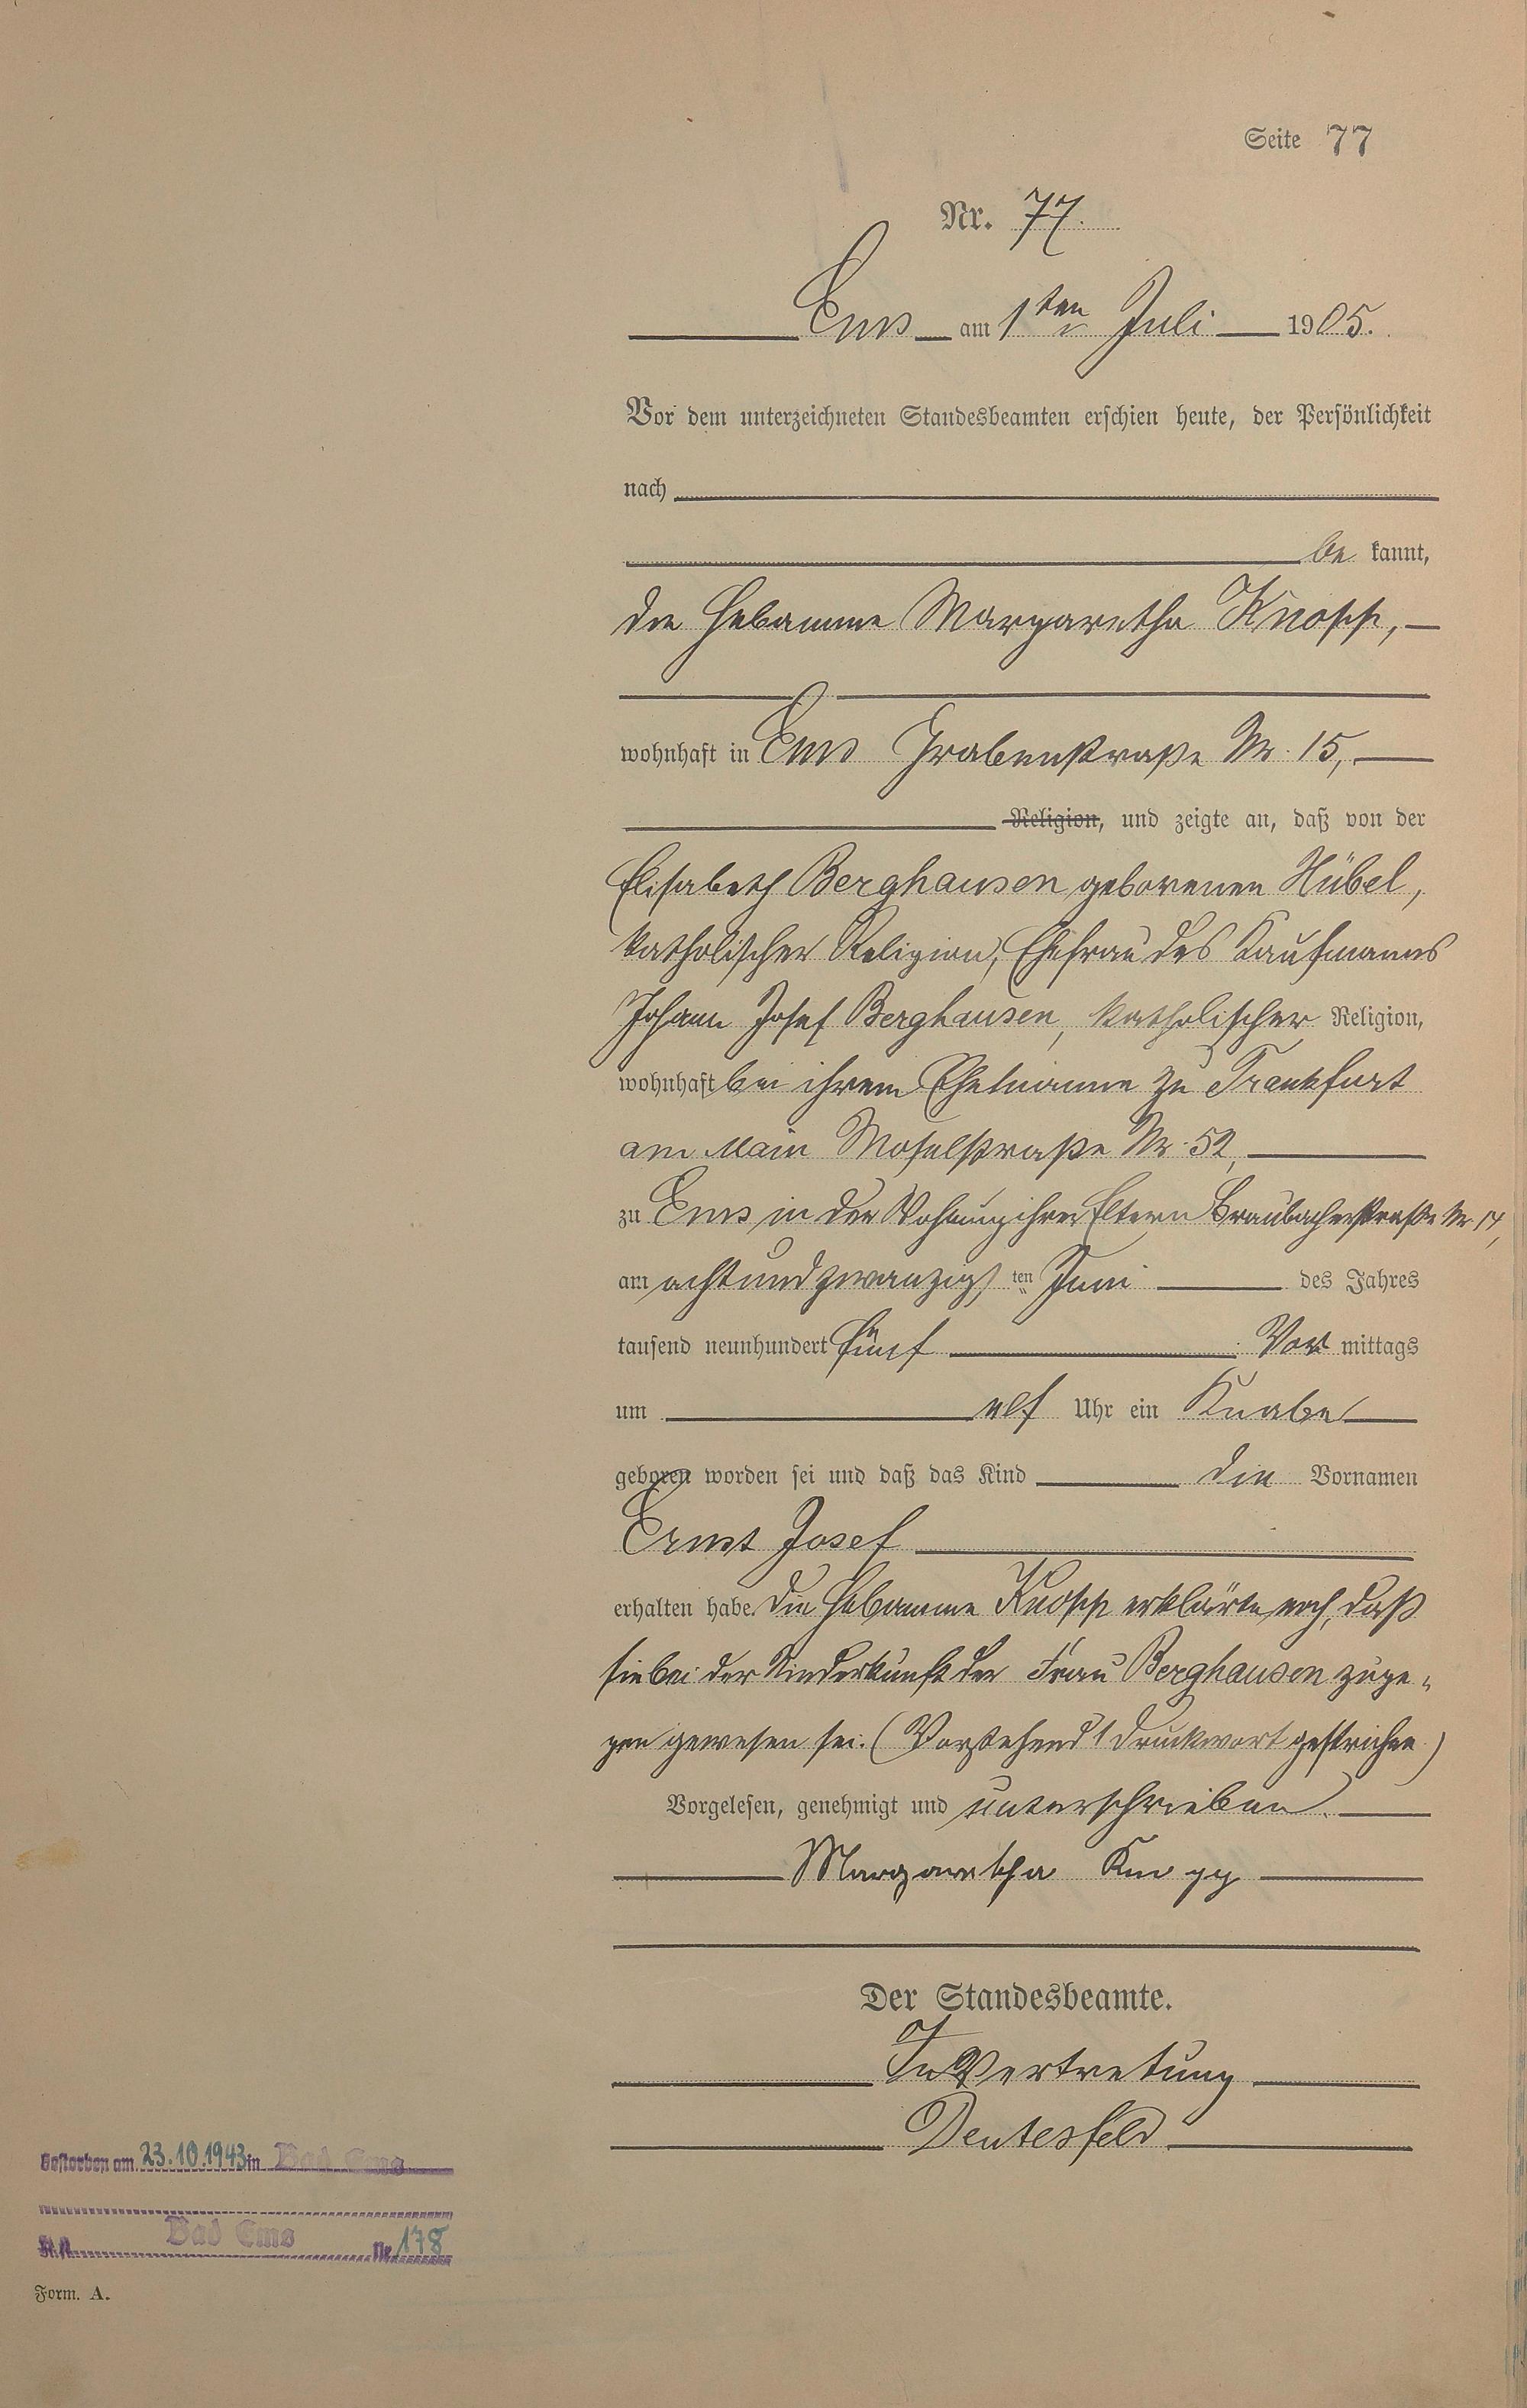 Seite 77
Nr. 77.
Ems am 1ten Juli 1905.
Vor dem unterzeichneten Standesbeamten erschien heute, der Persönlichkeit
nach
be kannt,
die Hebamme Margaretha Knopp,
wohnhaft in Ems Grabenstraße Nr. 15,
Religion, und zeigte an, daß von der
Elisabeth Berghausen geborenen Hübel,
katholischer Religion, Ehefrau des Kaufmanns
Johann Josef Berghausen, katholischer Religion,
wohnhaft bei ihrem Ehemanne zu Frankfurt
am Main Moselstraße Nr. 52,
zu Ems in der Wohnung ihrer Eltern Braubacherstraße Nr. 17,
am achtundzwanzigsten Juni des Jahres
tausend neunhundert fünf Vor mittags
um elf Uhr ein Knabe
geboren worden sei und daß das Kind die Vornamen
Ernst Josef
erhalten habe. Die Hebamme Knopp erklärte noch, daß
sie bei der Niederkunft der Frau Berghausen zuge-
gen gewesen sei. (Vorstehend 1 Druckwort gestrichen.)
Vorgelesen, genehmigt und unterschrieben.
Margaretha Knopp
Der Standesbeamte.
In Vertretung
Deutesfeld
Gestorben am 23.10.1943 in Bad Ems
St.A. Bad Ems Nr. 178
Form. A.